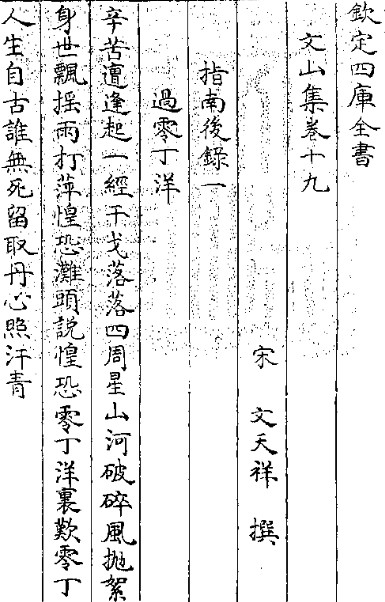 欽定四庫全書
文山集卷十九
宋 文天祥 撰
指南後錄一
過零丁洋
辛苦遭逢起一經干戈落落四周星山河破碎風拋絮
身世飄揺雨打萍惶恐灘頭説惶恐零丁洋裏歎零丁
人生自古誰無死留取丹心照汗青